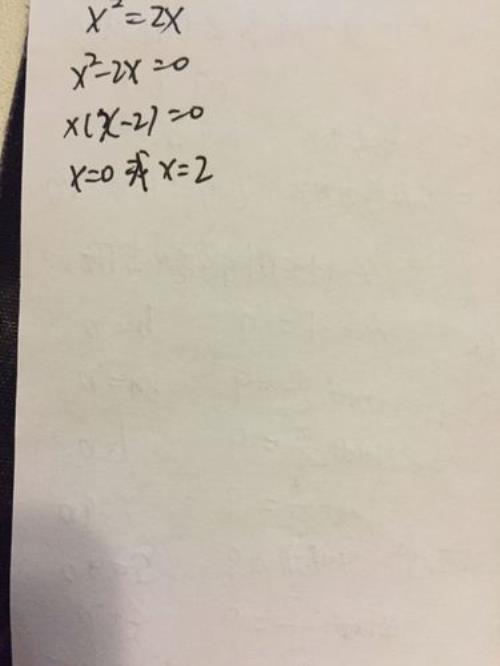 x²=2x
x²-2x=0
x(x-2)=0
x=0或x=2